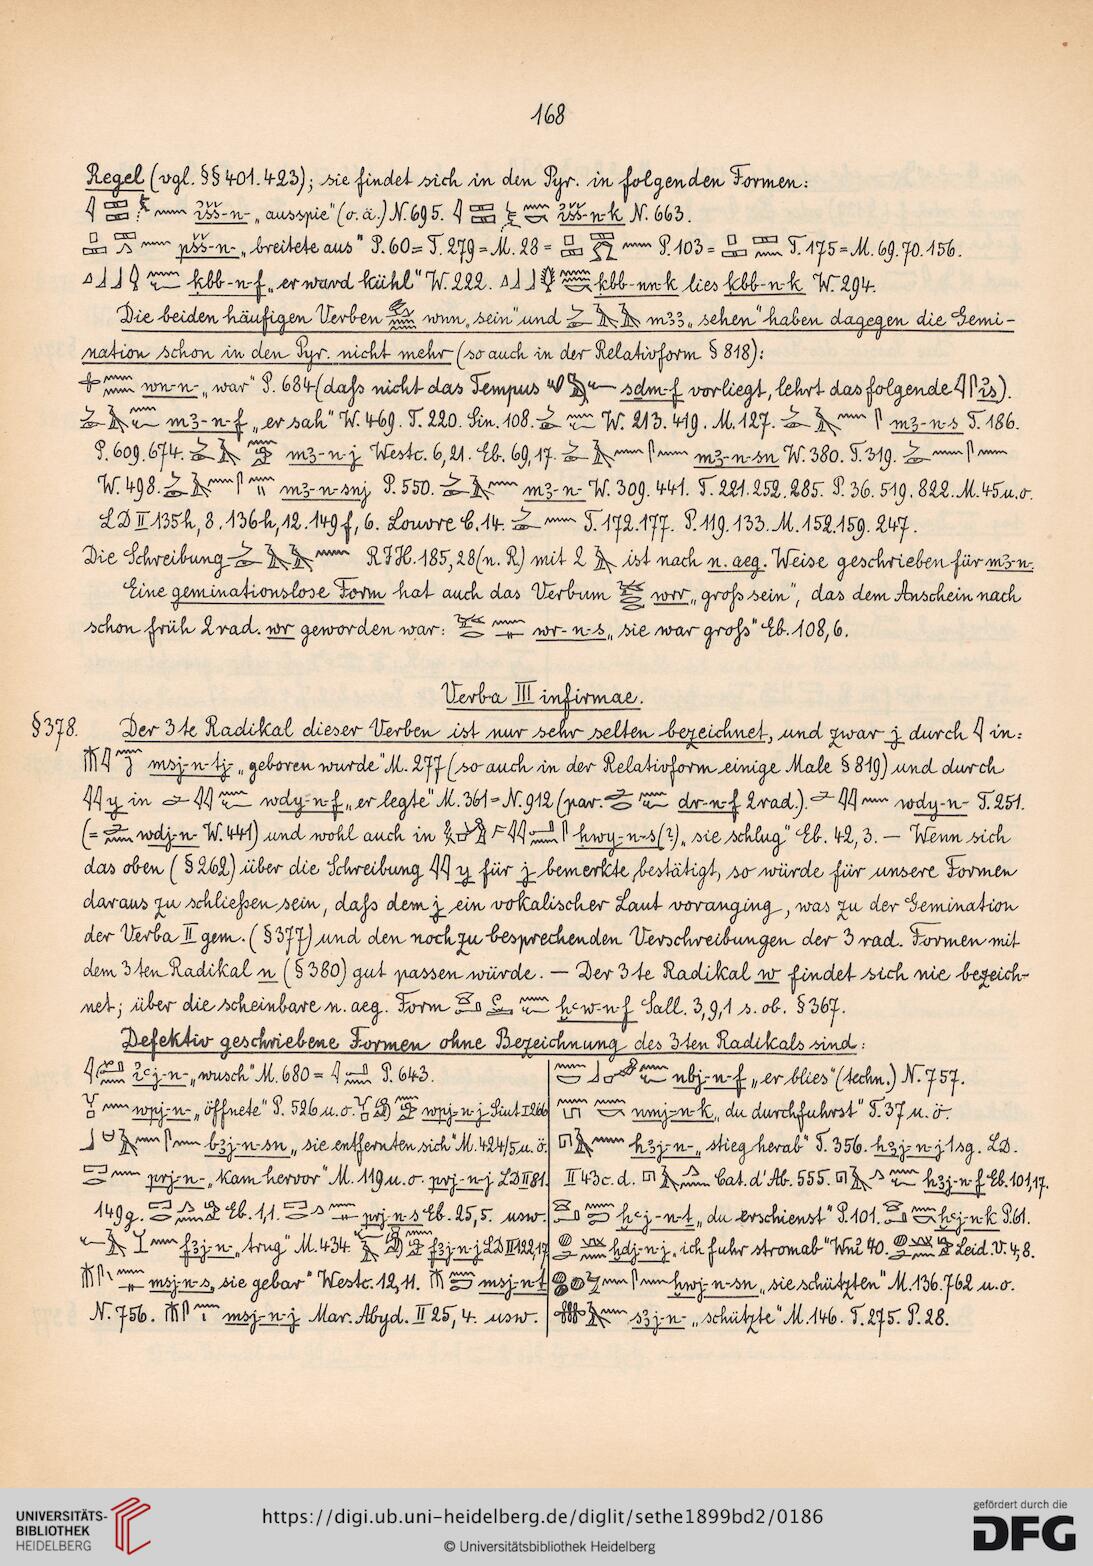 168
Regel (vgl. §§ 401. 423); sie findet sich in den Pyr. in folgenden Formen:
ἰšš-n- „ausspie" (o. ä.) N. 695. ἰšš-n-k N. 663.
pšš-n- „breitete aus" P. 60 = T. 279 = M. 28 = P. 103 = T. 175 = M. 69. 70. 156.
ḳbb-n-f „er ward kühl" W. 222. ḳbb-nn-k lies ḳbb-n-k W. 294.
Die beiden häufigen Verben wnn „sein" und mꜣꜣ „sehen" haben dagegen die Gemi-
nation schon in den Pyr. nicht mehr (so auch in der Relativform § 818):
wn-n- „war" P. 684 (daſs nicht das Tempus sḏm-f vorliegt, lehrt das folgende ἰs).
mꜣ-n-f „er sah" W. 469. T. 220. Sin. 108. W. 213. 419. M. 127. mꜣ-n-s T. 186.
P. 609. 674. mꜣ-n-j Westc. 6, 21. Eb. 69, 17. mꜣ-n-sn W. 380. T. 319.
W. 498. mꜣ-n-snj P. 550. mꜣ-n- W. 309. 441. T. 221. 252. 285. P. 36. 519. 822. M. 45 u. o.
LD II 135h, 8. 136h, 12. 149f, 6. Louvre C. 14. T. 172. 177. P. 119. 133. M. 152. 159. 247.
Die Schreibung RIH. 185, 28 (n. R) mit 2 ist nach n. aeg. Weise geschrieben für mꜣ-n.
Eine geminationslose Form hat auch das Verbum wrr „groſs sein", das dem Anschein nach
schon früh 2 rad. wr geworden war: wr-n-s „sie war groſs" Eb. 108, 6.
Verba III infirmae.
§ 378. Der 3te Radikal dieser Verben ist nur sehr selten bezeichnet, und zwar j durch in:
msj-n-tj- „geboren wurde" M. 277 (so auch in der Relativform einige Male § 819) und durch
y in wdy-n-f „er legte" M. 361 = N. 912 (par. dr-n-f 2 rad.). wdy-n- T. 251.
(= wdj-n- W. 441) und wohl auch in ḥwy-n-s (?) „sie schlug" Eb. 42, 3. — Wenn sich
das oben (§ 262) über die Schreibung y für j bemerkte bestätigt, so würde für unsere Formen
daraus zu schlieſsen sein, daſs dem j ein vokalischer Laut voranging, was zu der Gemination
der Verba II gem. (§ 377) und den noch zu besprechenden Verschreibungen der 3 rad. Formen mit
dem 3ten Radikal n (§ 380) gut passen würde. — Der 3te Radikal w findet sich nie bezeich-
net; über die scheinbare n. aeg. Form ḫꜥw-n-f Sall. 3, 9, 1 s. ob. § 367.
Defektiv geschriebene Formen ohne Bezeichnung des 3ten Radikals sind:
ἰꜥj-n- „wusch" M. 680 = P. 643.
wpj-n- „öffnete" P. 526 u. o. wpj-n-j Siut I 266
bꜣj-n-sn „sie entfernten sich" M. 424/5 u. ö.
prj-n- „kam hervor" M. 119 u. o. prj-n-j LD II 81.
149g. Eb. 1, 1. prj-n-s Eb. 25, 5. usw.
fꜣj-n- „trug" M. 434. fꜣj-n-j LD II 122, 17
msj-n-s „sie gebar" Westc. 12, 11. msj-n-t
N. 756. msj-n-j Mar. Abyd. II 25, 4. usw.
nbj-n-f „er blies" (techn.) N. 757.
nmj-n-k „du durchfuhrst" T. 37 u. ö.
hꜣj-n- „stieg herab" T. 356. hꜣj-n-j 1 sg. LD.
II 43c. d. Cat. d'Ab. 555. hꜣj-n-f Eb. 101, 17.
ḫꜥj-n-t „du erschienst" P. 101. ḫꜥj-n-k P. 61.
ḫdj-n-j „ich fuhr stromab" Wnἰ 40. Leid. V. 4, 8.
ḫwj-n-sn „sie schützten" M. 136. 762 u. o.
sꜣj-n- „schützte" M. 146. T. 275. P. 28.
UNIVERSITÄTS-
BIBLIOTHEK
HEIDELBERG
https://digi.ub.uni-heidelberg.de/diglit/sethe1899bd2/0186
© Universitätsbibliothek Heidelberg
gefördert durch die
DFG